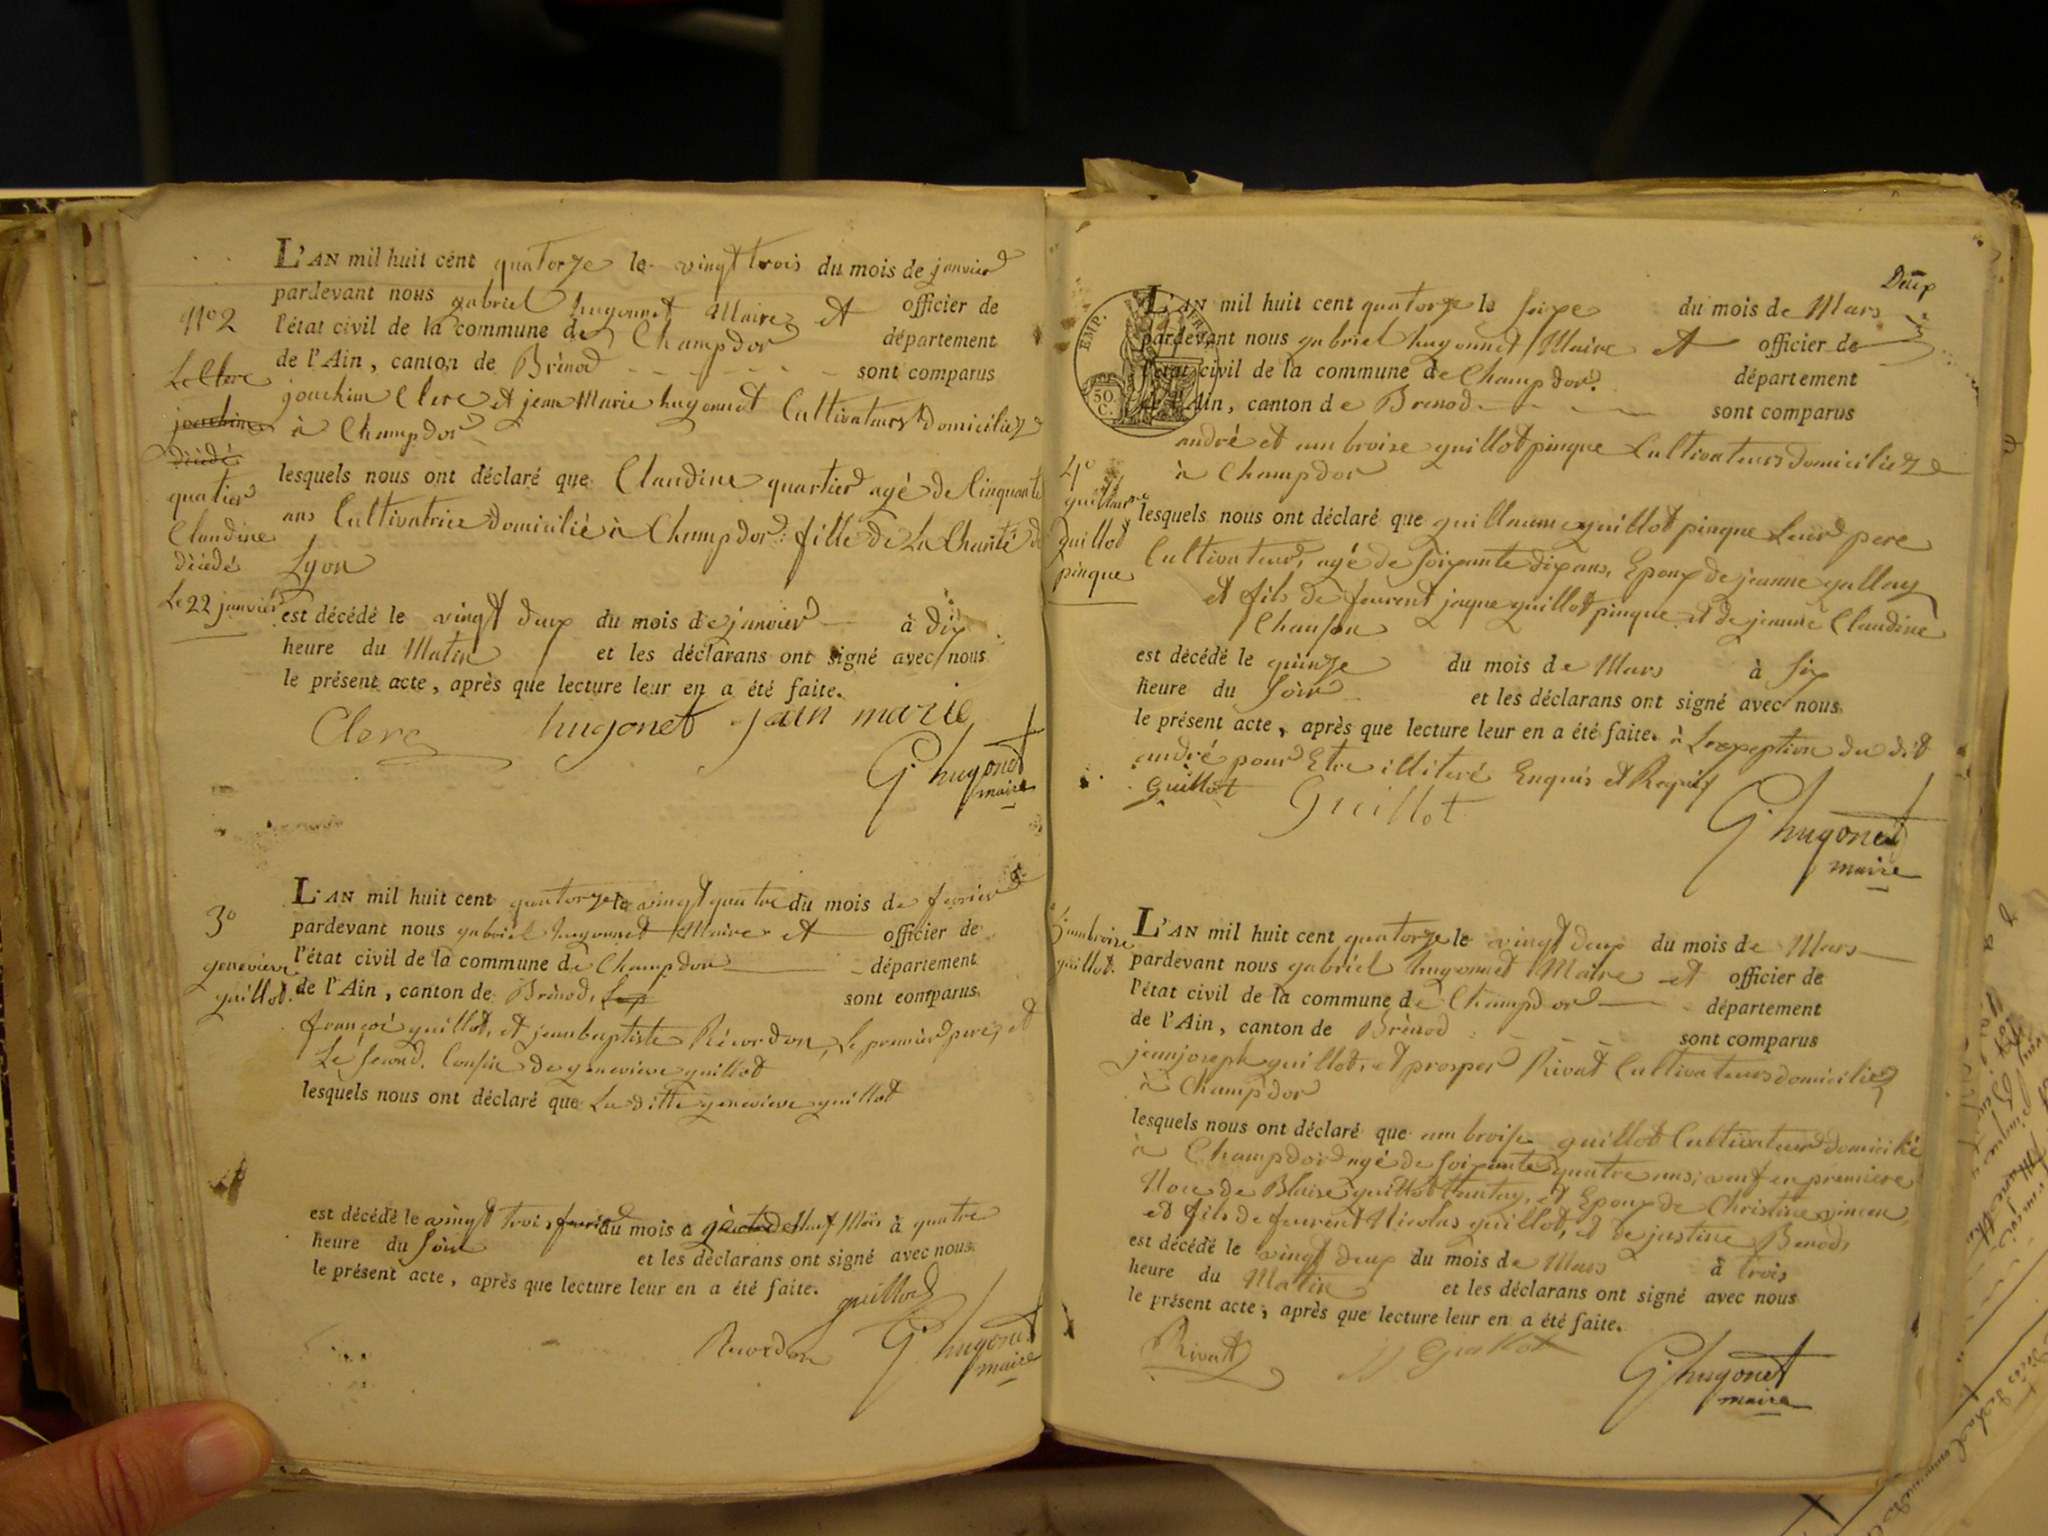 L'AN mil huit cent quatorze le vingt trois du mois de janvier
pardevant nous gabriel hugonnet Maire et officier de
l'état civil de la commune de Champdor département
de l'Ain, canton de Brénod sont comparus
joachim Clerc et jean Marie hugonnet Cultivateurs domiciliez
à Champdor
lesquels nous ont déclaré que Claudine quartier agé de Cinquante
ans Cultivatrice domicilié à Champdor fille de La Charité de
Lyon
est décédé le vingt deux du mois de janvier à dix
heure du Matin et les déclarans ont signé avec nous
le présent acte, après que lecture leur en a été faite.
Clerc hugonet jean marie
G. hugonet
maire
N° 2
Le Clerc
joachim
décédé
quatier
Claudine
décédé
Le 22 janvier
L'AN mil huit cent quatorze le vingt quatre du mois de fevrier
pardevant nous gabriel hugonnet Maire et officier de
l'état civil de la commune de Champdor département
de l'Ain, canton de Brénod, sont comparus
françoi guillot, et jean baptiste Récordon, Le premier pere, et
Le second Cousin de genevieve guillot
lesquels nous ont déclaré que La ditte genevieve guillot
est décédé le vingt trois fevrier du mois a Neuf Mois à quatre
heure du soir et les déclarans ont signé avec nous
le présent acte, après que lecture leur en a été faite.
guillot
Recordon G. hugonet
maire
3°
genevieve
guillot.
Deux
EMP.
50
C.
L'AN mil huit cent quatorze le seize du mois de Mars
pardevant nous gabriel hugonnet Maire et officier de
l'état civil de la commune de Champdor département
de l'Ain, canton de Brenod sont comparus
andré et ambroise guillot pinque Cultivateurs domiciliez
à Champdor
lesquels nous ont déclaré que guillaume guillot pinque Leur pere
Cultivateur, agé de soixante dix ans, Epoux de jeanne gallay
et fils de feurent jaque guillot pinque et de jeanne Claudine
Chanson
est décédé le quinze du mois de Mars à six
heure du soir et les déclarans ont signé avec nous
le présent acte, après que lecture leur en a été faite. à Lexeption du dit
andré pour Etre illiteré Enquis et Requis
guillot Guillot
G. hugonet
maire
4°
guillaume
guillot
pinque
L'AN mil huit cent quatorze le vingt deux du mois de Mars
pardevant nous gabriel hugonnet Maire et officier de
l'état civil de la commune de Champdor département
de l'Ain, canton de Brénod sont comparus
jean joseph guillot, et prosper Rivat Cultivateurs domiciliez
à Champdor
lesquels nous ont déclaré que ambroise guillot Cultivateur domicilié
à Champdor agé de soixante quatre ans; veuf en premiere
Noce de Blaise guillot et Epoux de Christine vincent
et fils de feurent Nicolas guillot, et de justine Benod
est décédé le vingt deux du mois de Mars à trois
heure du Matin et les déclarans ont signé avec nous
le présent acte, après que lecture leur en a été faite.
Rivat JJ Guillot
G. hugonet
maire
5° ambroise
guillot.